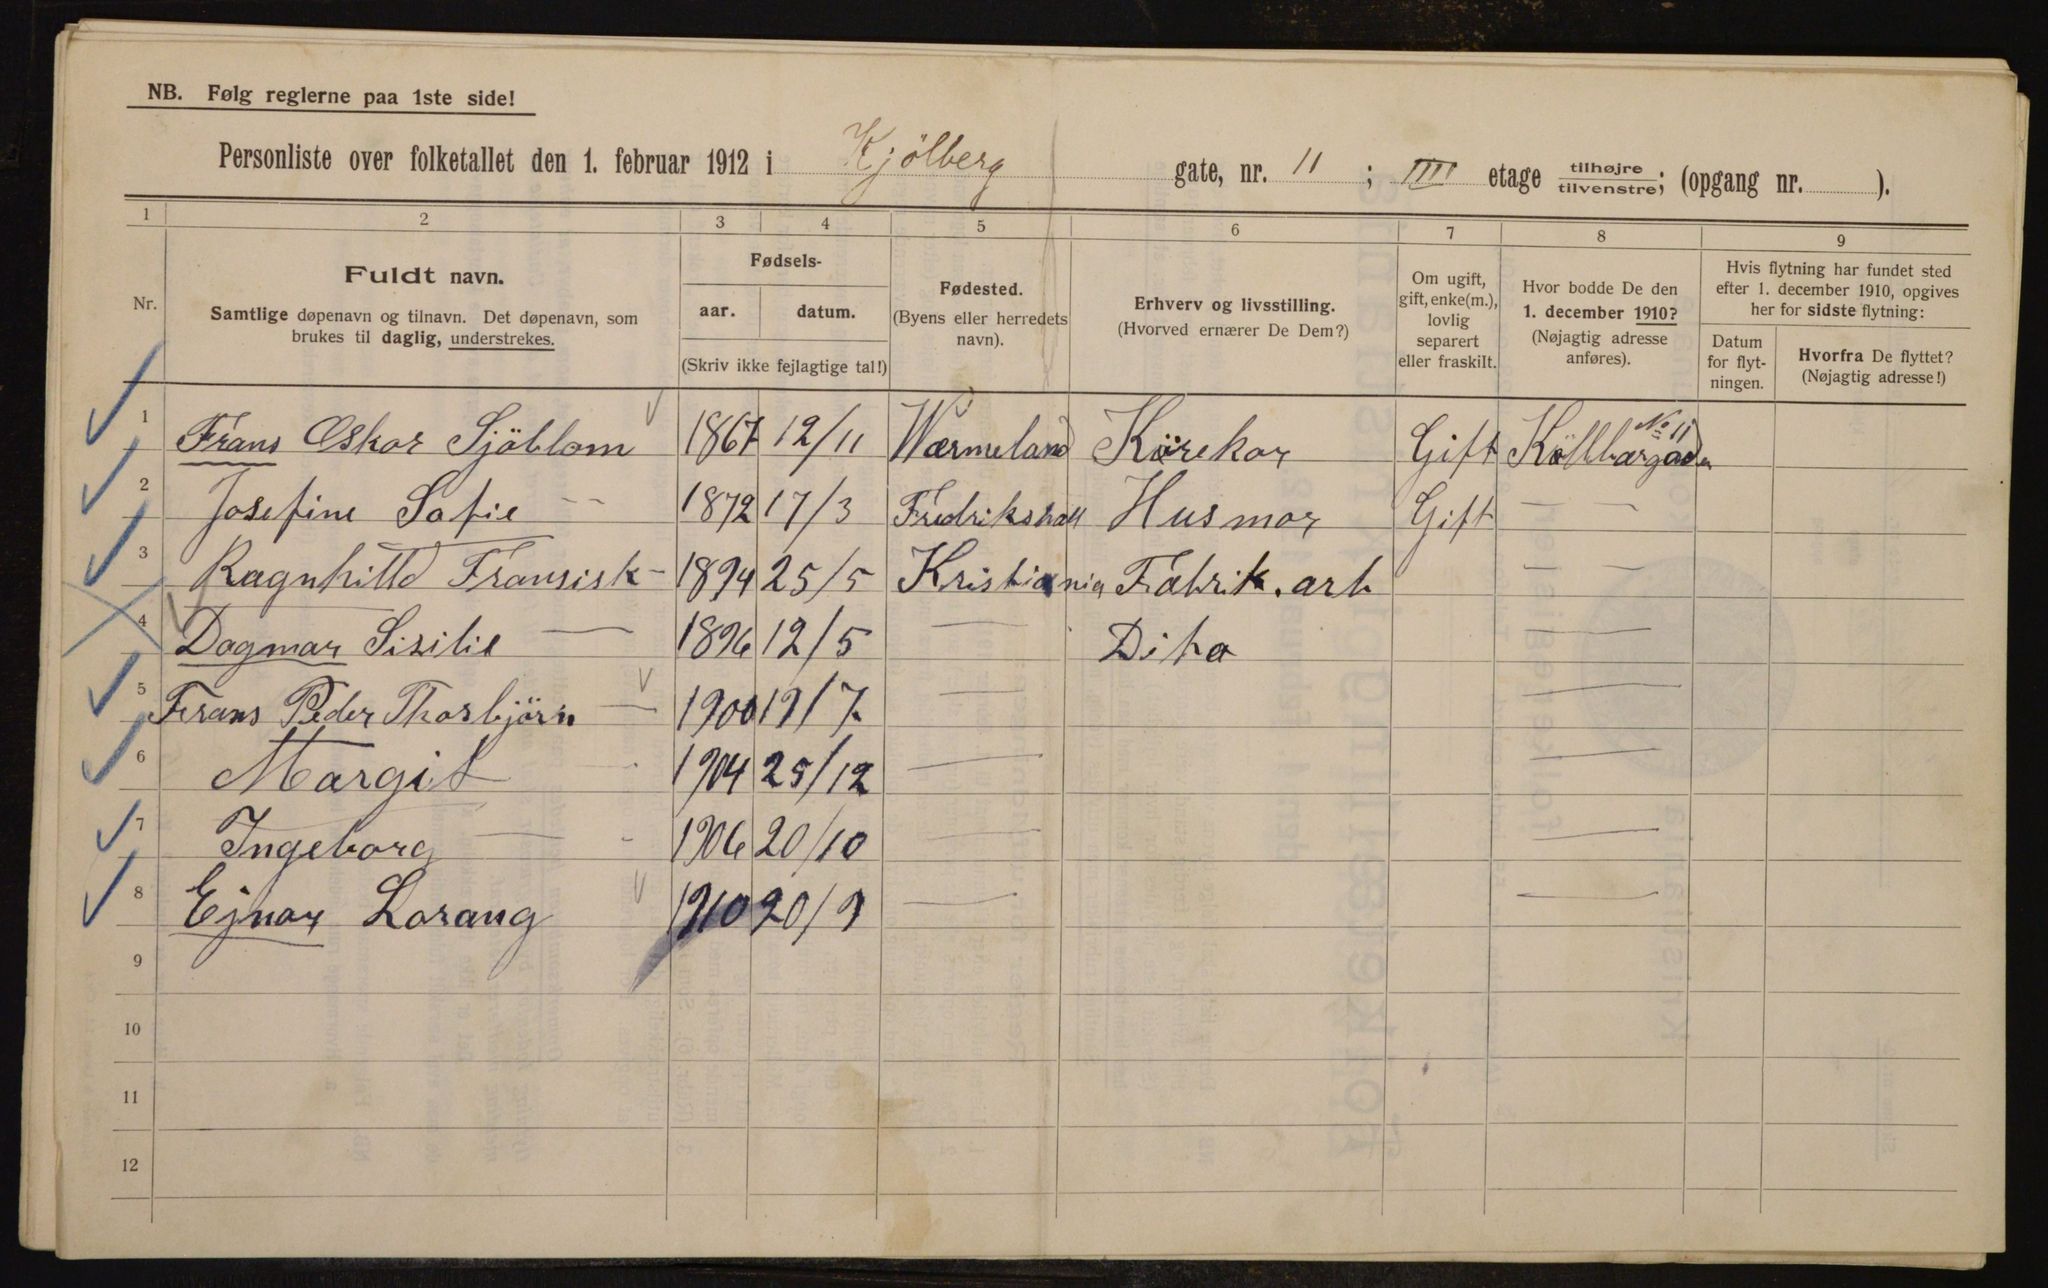 NB. Følg reglerne paa 1ste side!
Personliste over folketallet den 1. februar 1912 i Kjölberg gate, nr. 11 ; IIII etage tilhøjre/tilvenstre; (opgang nr. ).
1 2 3 4 5 6 7 8 9
Nr.
Fuldt navn.
Samtlige døpenavn og tilnavn. Det døpenavn, som
brukes til daglig, understrekes.
Fødsels-
aar. datum.
(Skriv ikke fejlagtige tal!)
Fødested.
(Byens eller herredets
navn).
Erhverv og livsstilling.
(Hvorved ernærer De Dem?)
Om ugift,
gift, enke(m.),
lovlig
separert
eller fraskilt.
Hvor bodde De den
1. december 1910?
(Nøjagtig adresse
anføres).
Hvis flytning har fundet sted
efter 1. december 1910, opgives
her for sidste flytning:
Datum
for flyt-
ningen.
Hvorfra De flyttet?
(Nøjagtig adresse!)
1 Frans Oskar Sjöblom 1867 12/11 Wærmeland Körekar Gift Köllbærgaden No 11
2 Josefine Sofie -- 1872 17/3 Fredrikshall Husmor Gift — —
3 Ragnhilld Fransisk- 1894 25/5 Kristiania Fabrik. arb — —
4 Dagmar Sisilie — 1896 12/5 — Dito —
5 Frans Peder Thorbjörn — 1900 19/7. — —
6 Margit - 1904 25/12 — —
7 Ingeborg — - 1906 20/10 — —
8 Ejnar Lorang 1910 20/9 — —
9
10
11
12